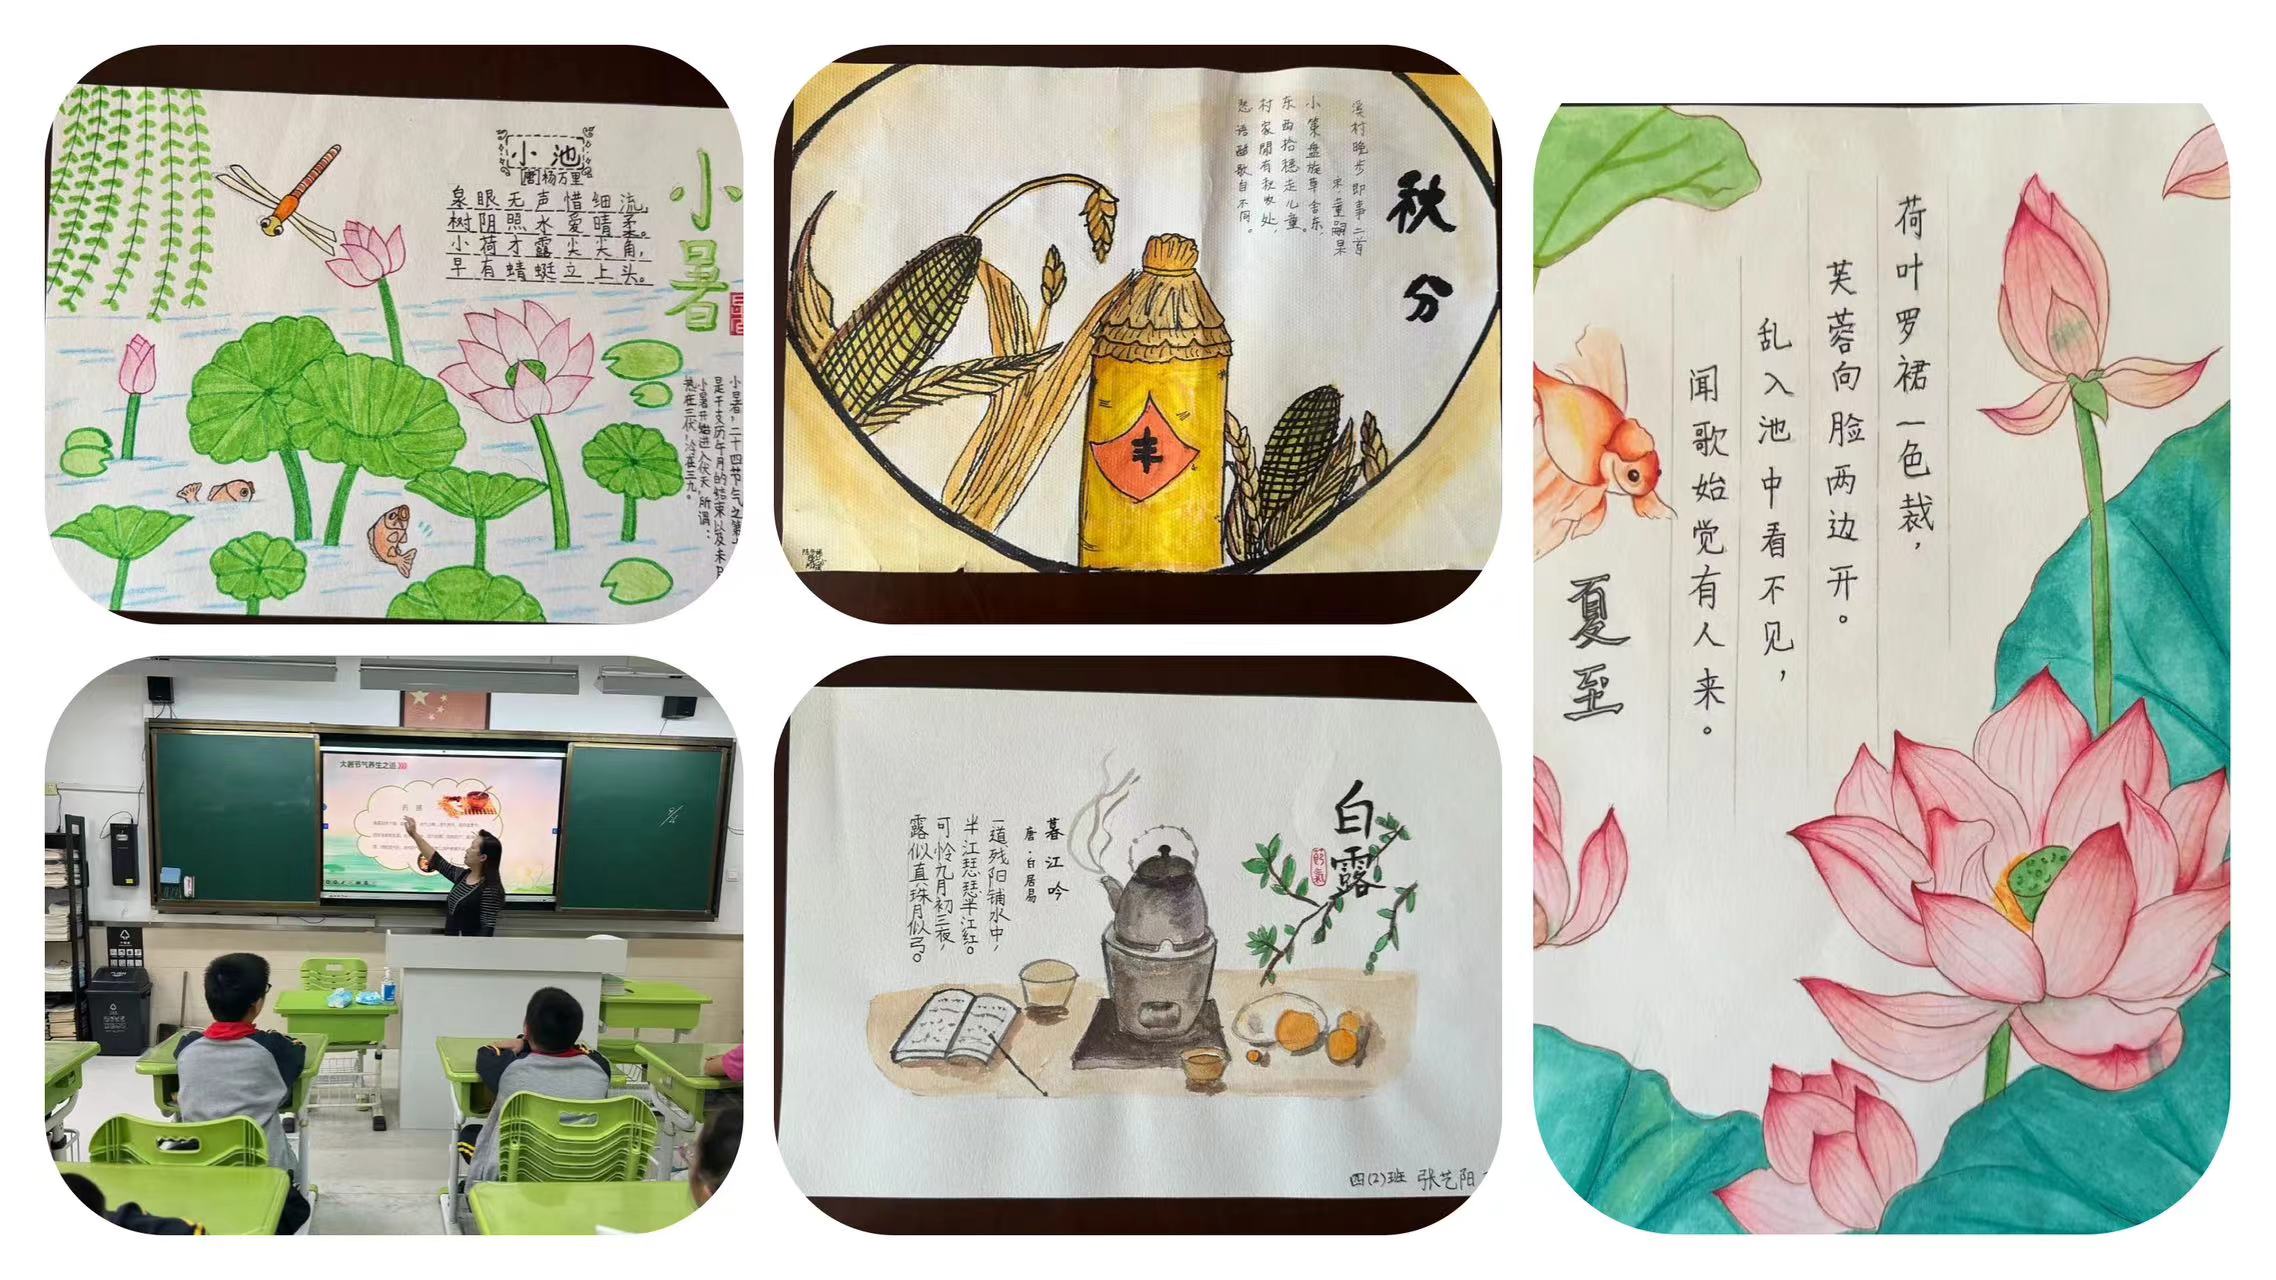 小池
[唐]杨万里
泉眼无声惜细流,
树阴照水爱晴柔。
小荷才露尖尖角,
早有蜻蜓立上头。
小暑
小暑,二十四节气之第
是干支历午月的结束以及未月
小暑开始进入伏天,所谓:
热在三伏,冷在三九。
秋分
溪村晚步即事二首
宋·董嗣杲
小策盘旋草舍东,
东西拾穗走儿童。
村家閒有秋收处,
愁语酣歌自不同。
丰
荷叶罗裙一色裁,
芙蓉向脸两边开。
乱入池中看不见,
闻歌始觉有人来。
夏至
大暑节气养生之道
白露
节气
暮江吟
唐·白居易
一道残阳铺水中,
半江瑟瑟半江红。
可怜九月初三夜,
露似真珠月似弓。
四(2)班 张艺阳